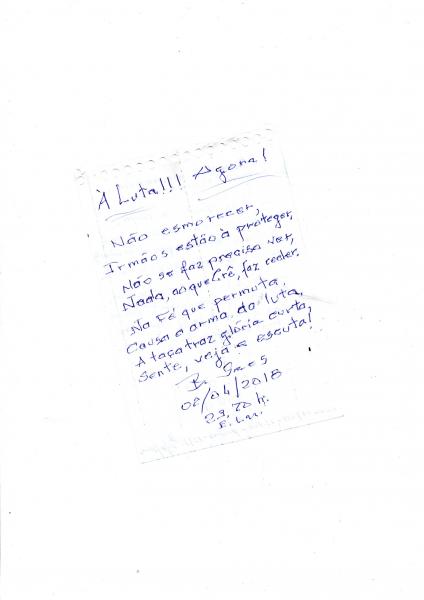 À Luta!!! Agora!
Não esmorecer,
Irmãos estão à proteger,
Não se faz preciso ver,
Nada, aquele crê, faz ceder.
Na Fé que permuta,
Causa a arma da luta,
A taça traz glória curta,
Sente, veja e escuta!
08/04/2018
23,20 h.